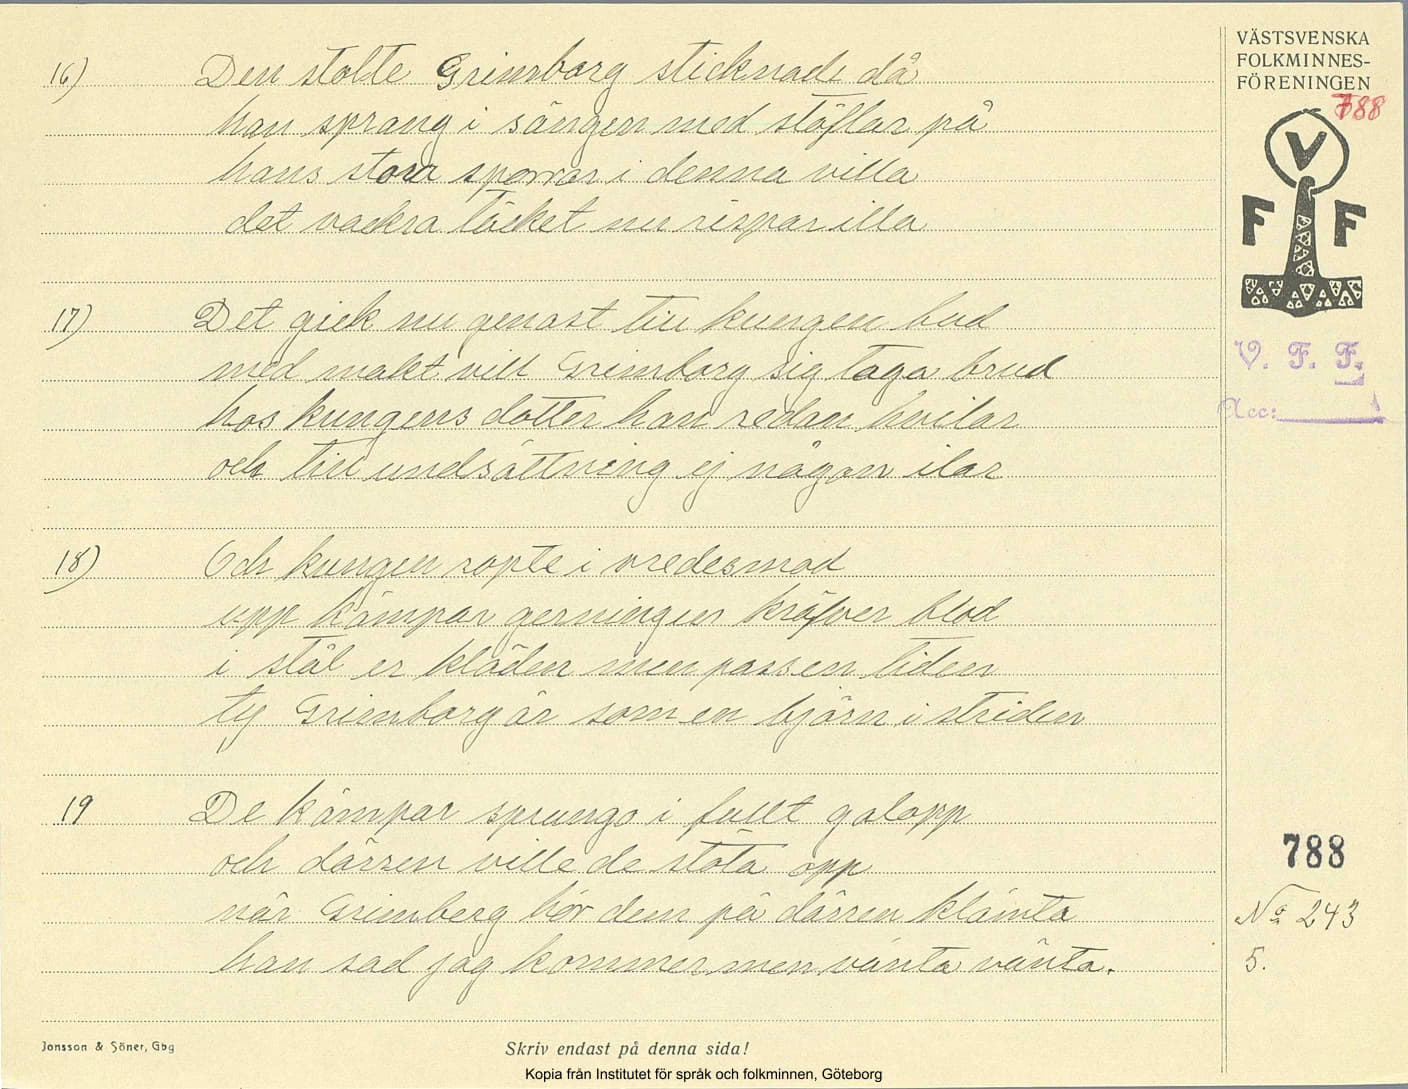 VÄSTSVENSKA
FOLKMINNES-
FÖRENINGEN
788
V
F F
V. F. F.
Acc:
16) Den stolte Grimborg sticknade då
han sprang i sängen med stöflar på
hans stora sporrar i denna villa
det vackra täcket nu rispar illa
17) Det gick nu genast till kungen bud
med makt vill Grimborg sig taga brud
hos kungens dotter han redan hvilar
och till undsättning ej någon ilar
18) Och kungen ropte i vredesmod
upp kämpar gerningen kräfver blod
i stål er kläden men passen tiden
ty Grimborg är som en björn i striden
19 De kämpar sprungo i fullt galopp
och dörren ville de stöta opp
när Grimberg hör dem på dörren klämta
han sad jag kommer men vänta vänta.
788
No 243
5.
Jonsson & Söner, Gbg
Skriv endast på denna sida!
Kopia från Institutet för språk och folkminnen, Göteborg